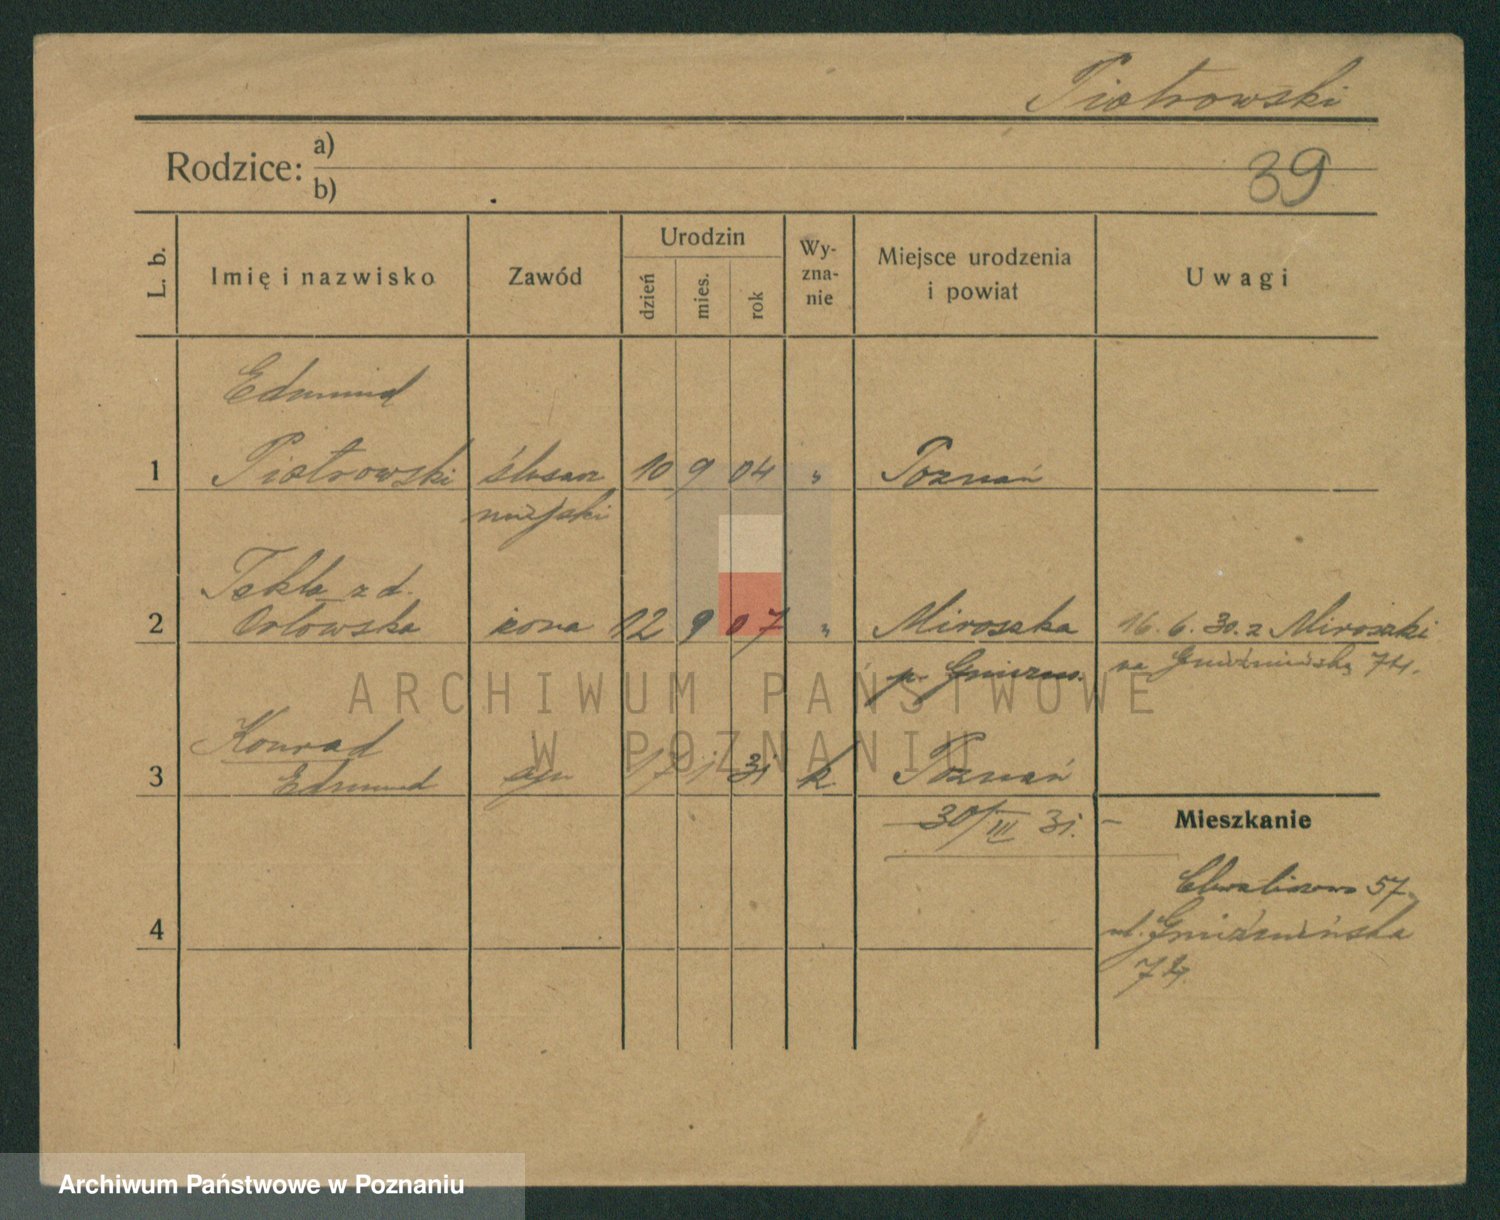 Piotrowski
Rodzice: a)
b)
39
L. b.
Imię i nazwisko
Zawód
Urodzin
dzień
mies.
rok
Wy-
zna-
nie
Miejsce urodzenia
i powiat
Uwagi
Edmund
1 Piotrowski ślusarz 10 9 04 " Poznań
miejski
Tekla z d.
2 Orłowska żona 12 9 07 " Miroszka 16. 6. 30. z Miroszki
p. Gniezno. na Gnieźnieńską 74.
Konrad
3 Edmund syn 17 1 31 k Poznań
30/III 31. -
Mieszkanie
57
ul. Gnieźnieńska
74.
4
ARCHIWUM PAŃSTWOWE
W POZNANIU
Archiwum Państwowe w Poznaniu